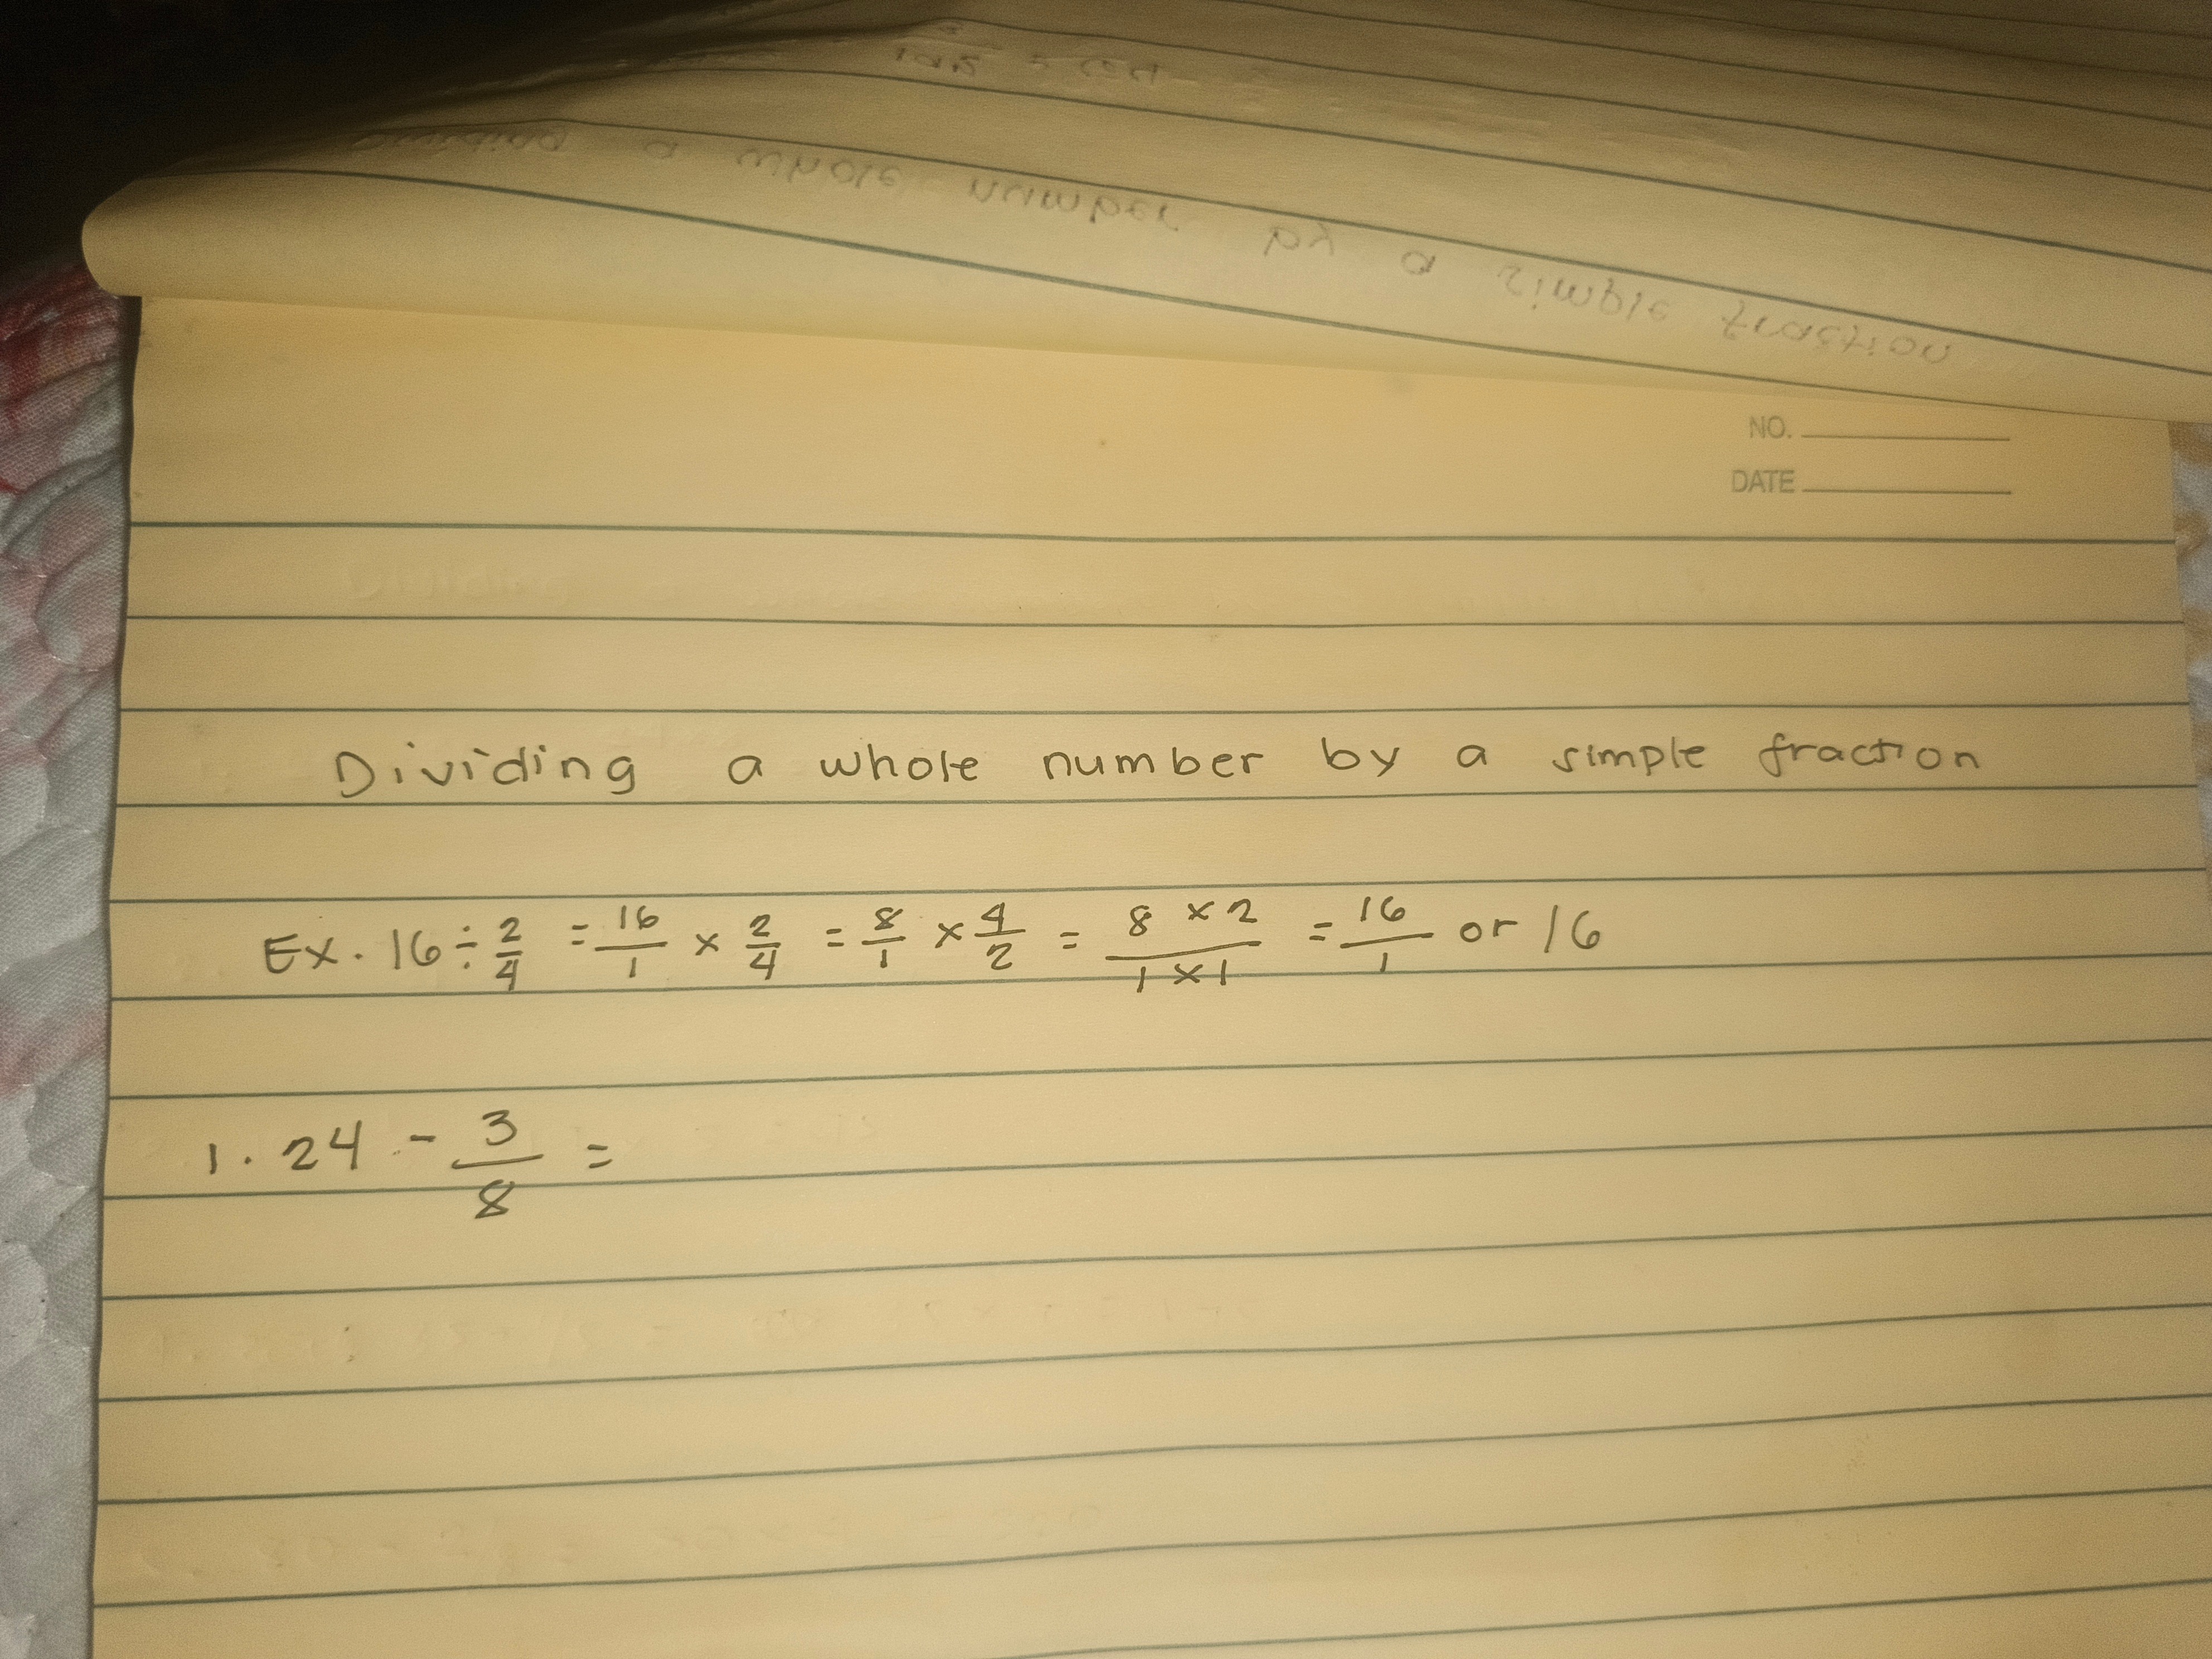 NO.
DATE
Dividing a whole number by a simple fraction
Ex. 16 ÷ 2/4 = 16/1 × 2/4 = 8/1 × 4/2 = 8 × 2 / 1 × 1 = 16/1 or 16
1. 24 - 3/8 =